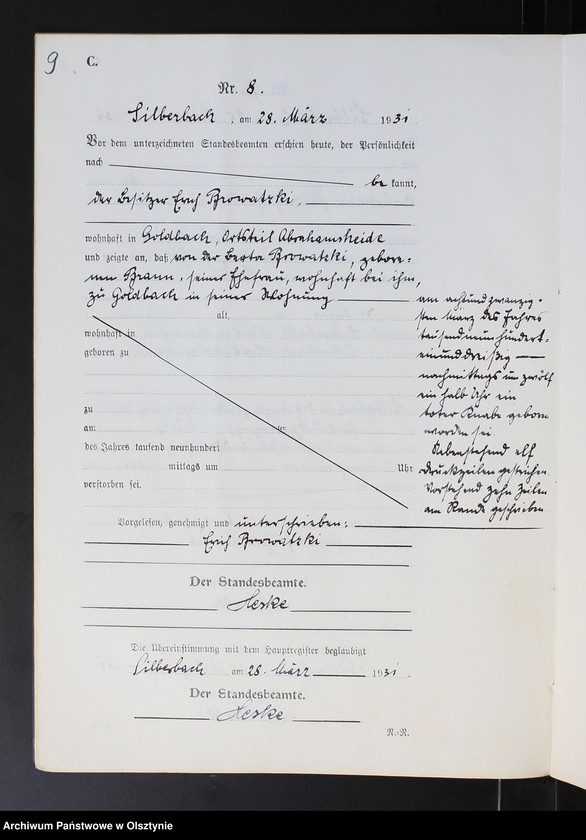 9
C.
Nr. 8.
Silberbach, am 28. März 1931.
Vor dem unterzeichneten Standesbeamten erschien heute, der Persönlichkeit
nach
be kannt,
der Besitzer Erich Browatzki,
wohnhaft in Goldbach, Ortsteil Abrahamsheide
und zeigte an, daß von der Berta Browatzki, gebore-
nen Braun, seiner Ehefrau, wohnhaft bei ihm,
zu Goldbach in seiner Wohnung
am achtundzwanzig-
sten März des Jahres
tausendneunhundert-
einunddreißig
nachmittags um zwölf
ein halb Uhr ein
toter Knabe geboren
worden sei.
Nebenstehend elf
Druckzeilen gestrichen.
Vorstehend zehn Zeilen
am Rande geschrieben.
alt,
wohnhaft in
geboren zu
zu
am ten
des Jahres tausend neunhundert
mittags um Uhr
verstorben sei.
Vorgelesen, genehmigt und unterschrieben:
Erich Browatzki
Der Standesbeamte.
Heske
Die Übereinstimmung mit dem Hauptregister beglaubigt
Silberbach am 28. März 1931.
Der Standesbeamte.
Heske
R.-R.
Archiwum Państwowe w Olsztynie